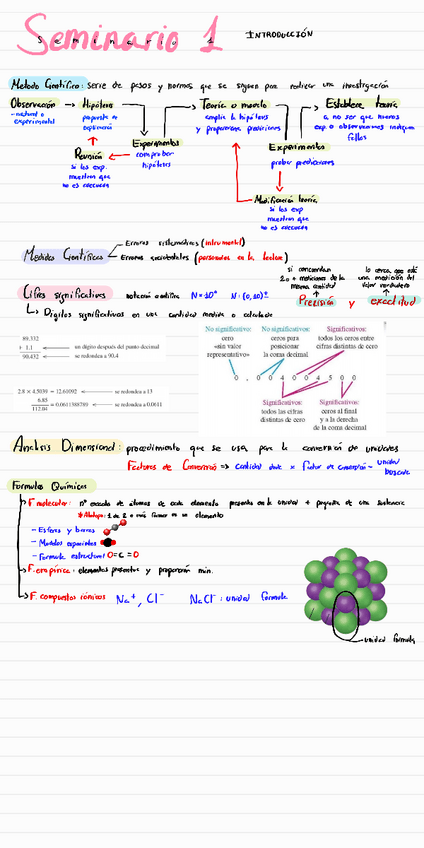 Seminario 1 INTRODUCCIÓN
Seminario 1
Metodo Científico: serie de pasos y normas que se siguen para realizar una investigación
Observación → Hipótesis Teoría o modelo Establece teoría
-natural o experimental
propuesta de explicación
amplia la hipótesis y proporciona predicciones
a no ser que nuevos exp. o observaciones indiquen fallos
Experimentos
comprobar hipótesis
Revisión
si los exp. muestran que no es adecuada
Experimentos
probar predicciones
Modificación teoría
si los exp muestran que no es adecuada
Medidas Científicas
Errores sistemáticos (intrumental)
Errores accidentales (personales en la lectura)
si concuerdan 2 o + mediciones de la misma cantidad
lo cerca que está una medición del valor verdadero
Cifras significativas notación científica
Precisión y exactitud
↳ Dígitos significativos en una cantidad medida o calculada
89,332
+ 1,1 ← un dígito después del punto decimal
90,432 ← se redondea a 90,4
2.8 × 4.5039 = 12.61092 ← se redondea a 13
6.85
112.04 = 0.0611388789 ← se redondea a 0.0611
No significativo: cero «sin valor representativo»
No significativos: ceros para posicionar la coma decimal
Significativos: todos los ceros entre cifras distintas de cero
0 . 0 0 4 0 0 4 5 0 0
Significativos: todas las cifras distintas de cero
Significativos: ceros al final y a la derecha de la coma decimal
Analisis Dimensional: procedimiento que se usa para la conversión de unidades
Factores de Conversión ⇒ cantidad dada × factor de conversión = unidad buscada
Formulas Químicas
F. molecular: nº exacto de átomos de cada elemento presentes en la unidad + pequeña de una sustancia
*Alótropo: 1 de 2 o más formas de un elemento
- Esferas y barras
- Modelos espaciales
- Formula estructural O=C=O
F. empírica: elementos presentes y proporción min.
F. compuestos iónicos Na⁺, Cl⁻ NaCl: unidad formula
unidad formula